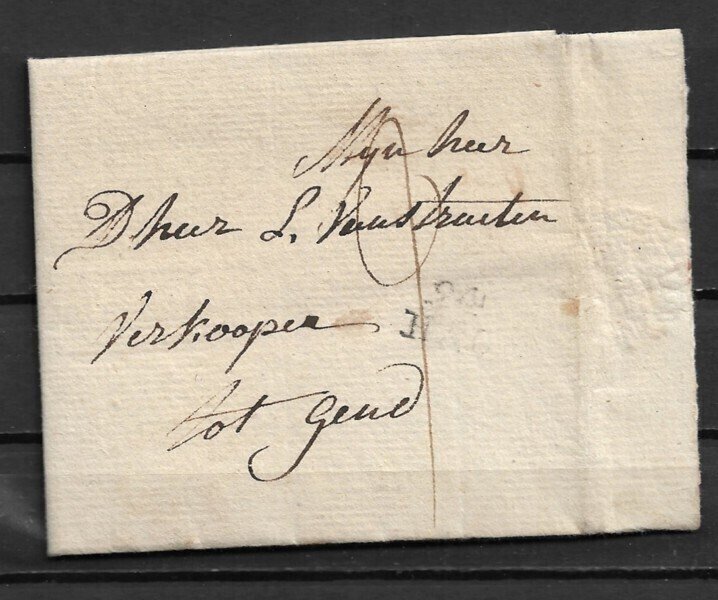 Mijn heer
Dheer L. Vanstraeten
Verkooper
tot gend